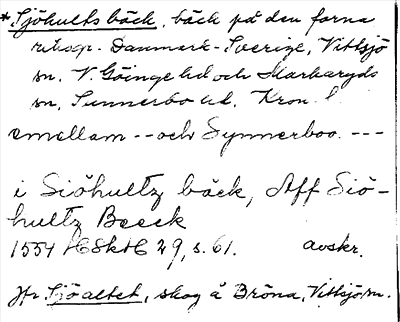 *Sjöhults bäck, bäck på den forna
riksgr. Danmark-Sverige, Vittsjö
sn, V. Göinge hd och Markaryds
sn, Sunnerbo hd, Kron. l.
emellam -- och Synnerboo ---
i Siöhultz bäck, Aff Siö-
hultz Beeck
1554 HSkH 29, s. 61. avskr.
Jfr Sjöaltet, skog å Bröna, Vittsjö sn.